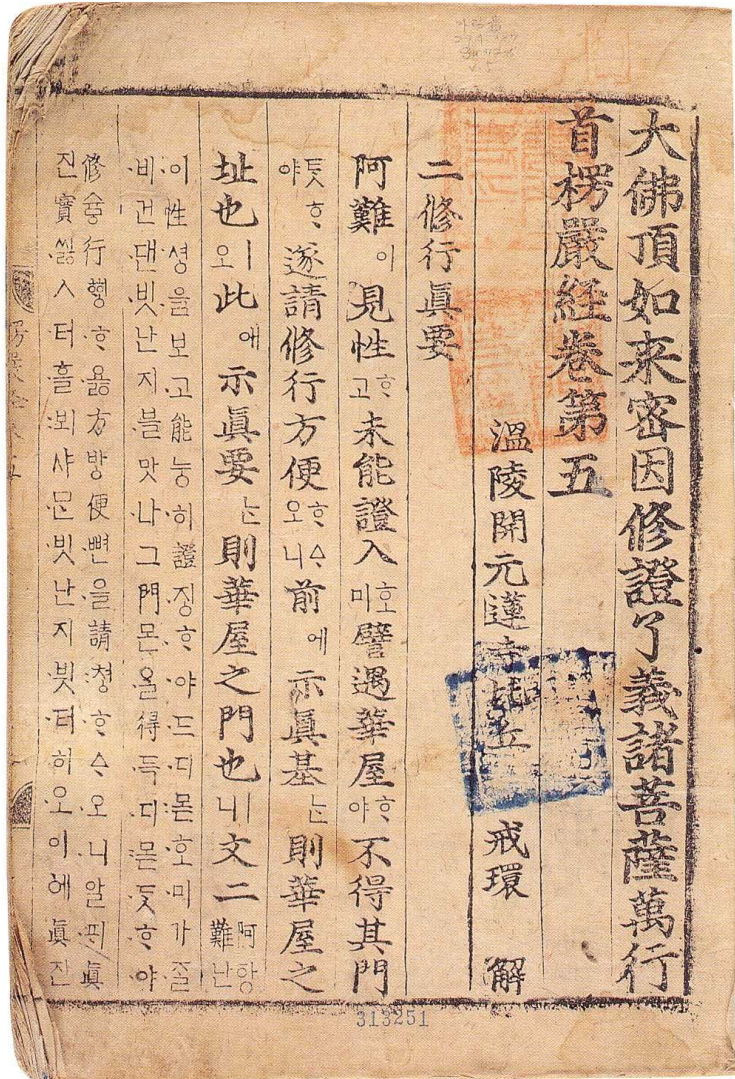 大佛頂如来密因修證了義諸菩薩萬行
首楞嚴經卷第五
溫陵開元蓮寺比丘 戒環 解
二修行眞要
阿難이見性ᄒᆞ고未能證入호미譬遇華屋ᄒᆞ야不得其門
ᄃᆞᆺᄒᆞ야遂請修行方便ᄒᆞᄉᆞ오니前에示眞基ᄂᆞᆫ則華屋之
址也ㅣ오此애示眞要ᄂᆞᆫ則華屋之門也ㅣ니文二
阿항難난
이性셩을보고能능히證징ᄒᆞ야드디몯호미가ᄌᆞᆯ
비건댄빗난지블맛나그門몬ᄋᆞᆯ得득디몯ᄃᆞᆺᄒᆞ야
修슈ᇢ行ᄒᆡᇰᄒᆞ욜方방便뼌을請청ᄒᆞᄉᆞ오니알ᄑᆡ眞
진實씷ㅅ터흘뵈샤ᄆᆞᆫ빗난지븻터히오이ᅌᅦ眞진
313251